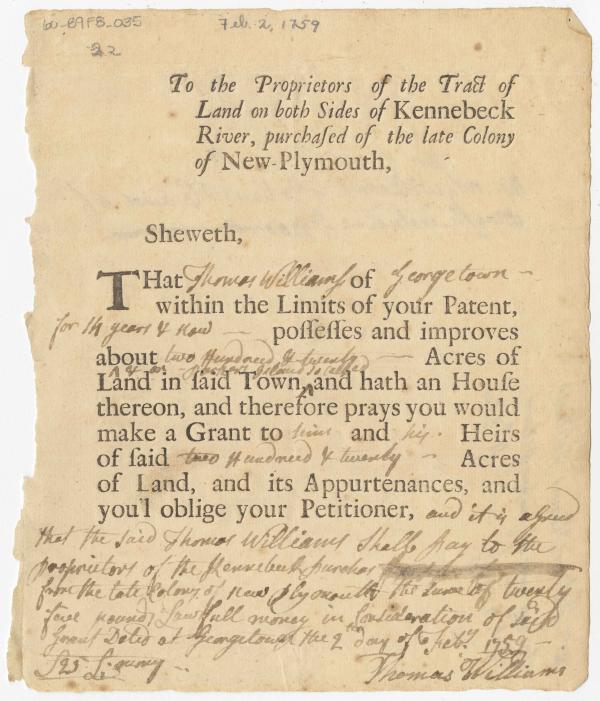 bv-B9F8-035
Feb. 2, 1759
22
To the Proprietors of the Tract of
Land on both Sides of Kennebeck
River, purchaſed of the late Colony
of New-Plymouth,
Sheweth,
THat Thomas Williams of Georgetown
within the Limits of your Patent,
for 14 years & now poſſeſſes and improves
about two Hundred & twenty Acres of
Island so called
Land in ſaid Town, and hath an Houſe
thereon, and therefore prays you would
make a Grant to him and his Heirs
of ſaid two Hundred & twenty Acres
of Land, and its Appurtenances, and
you'l oblige your Petitioner, and it is agreed
that the said Thomas Williams shall pay to the
proprietors of the Kennebeck purchas
from the late Colony of New plymouth the sume of twenty
five pounds Lawfull money in Consideration of said
Grant Dated at Georgetown the 2 day of Febr 1759
Thomas Williams